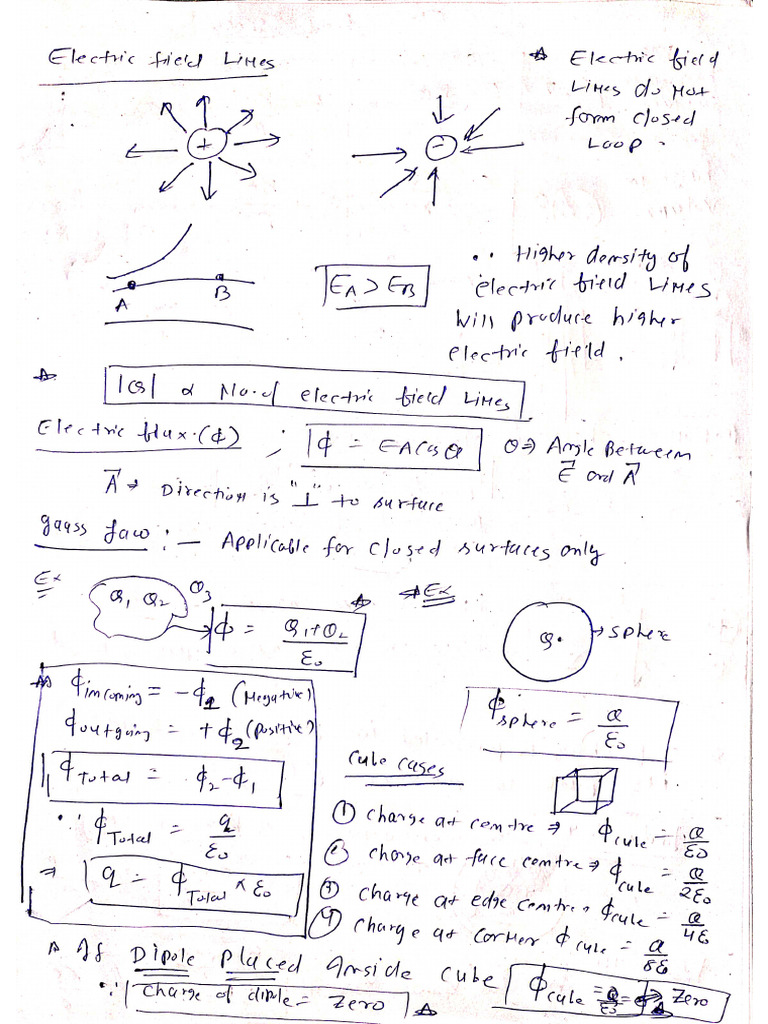 Electric field Lines
* Electric field
Lines do not
form closed
Loop.
+
-
A
B
E_A > E_B
∵ Higher density of
electric field Lines
will produce higher
electric field.
* |Q| α No. of electric field Lines
Electric flux (ϕ) ; ϕ = EA cos θ
θ ⇒ Angle Between
E⃗ and A⃗
A⃗ ⇒ Direction is "⊥" to surface
Gauss Law :- Applicable for closed surfaces only
Ex
Q₁ Q₂ Q₃
ϕ = (Q₁+Q₂)/ε₀
⇒ Ex
Q. → sphere
ϕ_sphere = Q/ε₀
ϕ_incoming = -ϕ₁ (Negative)
ϕ_outgoing = +ϕ₂ (positive)
ϕ_Total = ϕ₂-ϕ₁
∵ ϕ_Total = q/ε₀
⇒ q = ϕ_Total × ε₀
Cube cases
① charge at centre ⇒ ϕ_cube = Q/ε₀
② charge at face centre ⇒ ϕ_cube = Q/2ε₀
③ charge at edge centre, ϕ_cube = Q/4ε₀
④ charge at corner ϕ_cube = Q/8ε₀
* If Dipole Placed Inside cube
∵ charge of dipole = Zero
ϕ_cube = Zero